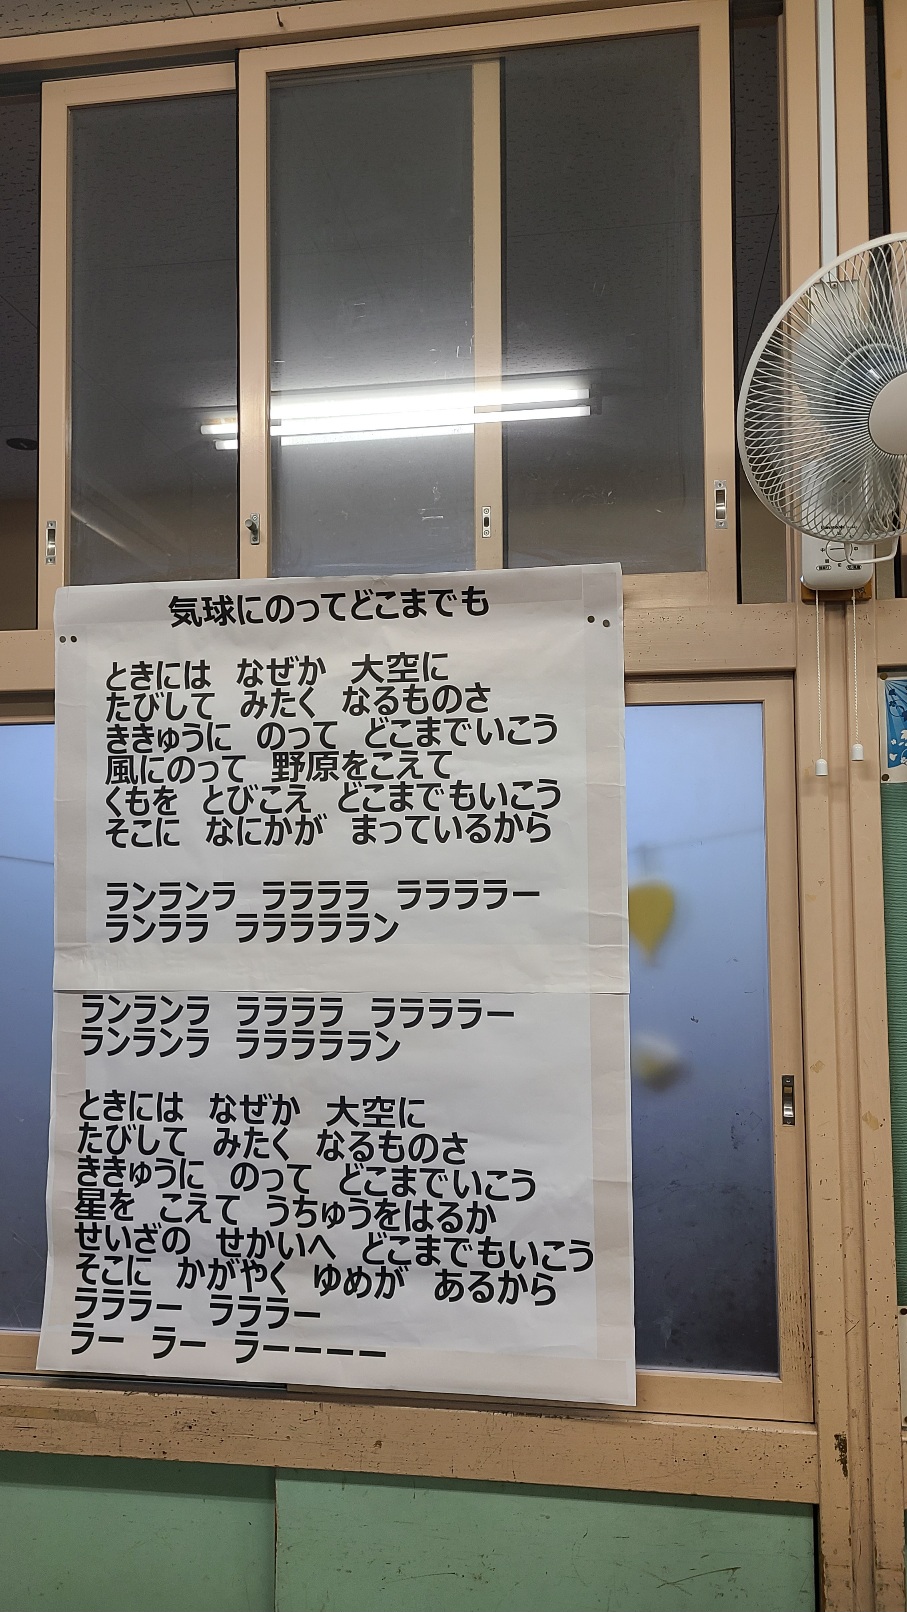 気球にのってどこまでも
ときには　なぜか　大空に
たびして　みたく　なるものさ
ききゅうに　のって　どこまでいこう
風にのって　野原をこえて
くもを　とびこえ　どこまでもいこう
そこに　なにかが　まっているから
ランランラ　ラララララ　ラララララー
ランララ　ララララララン
ランランラ　ラララララ　ラララララー
ランランラ　ララララララン
ときには　なぜか　大空に
たびして　みたく　なるものさ
ききゅうに　のって　どこまでいこう
星を　こえて　うちゅうをはるか
せいざの　せかいへ　どこまでもいこう
そこに　かがやく　ゆめが　あるから
ラララー　ラララー
ラー　ラー　ラーーーー